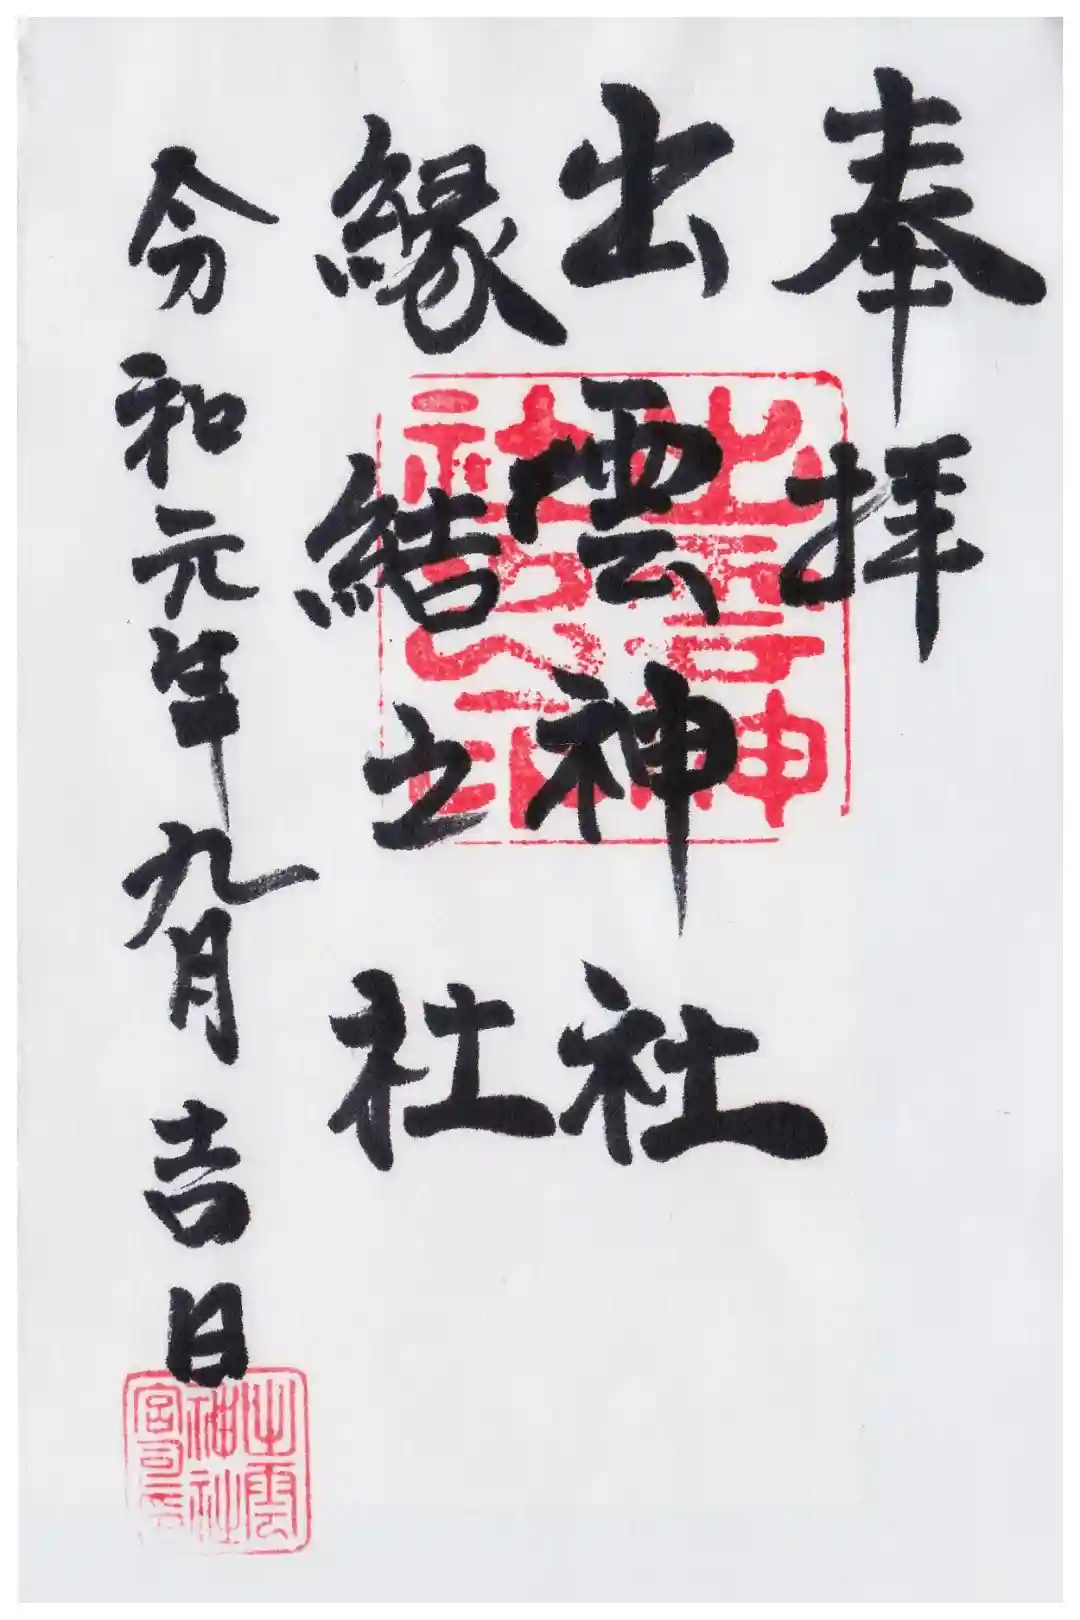 奉拝
出雲神社
縁結之社
令和元年九月吉日
出雲神社
宮司之印